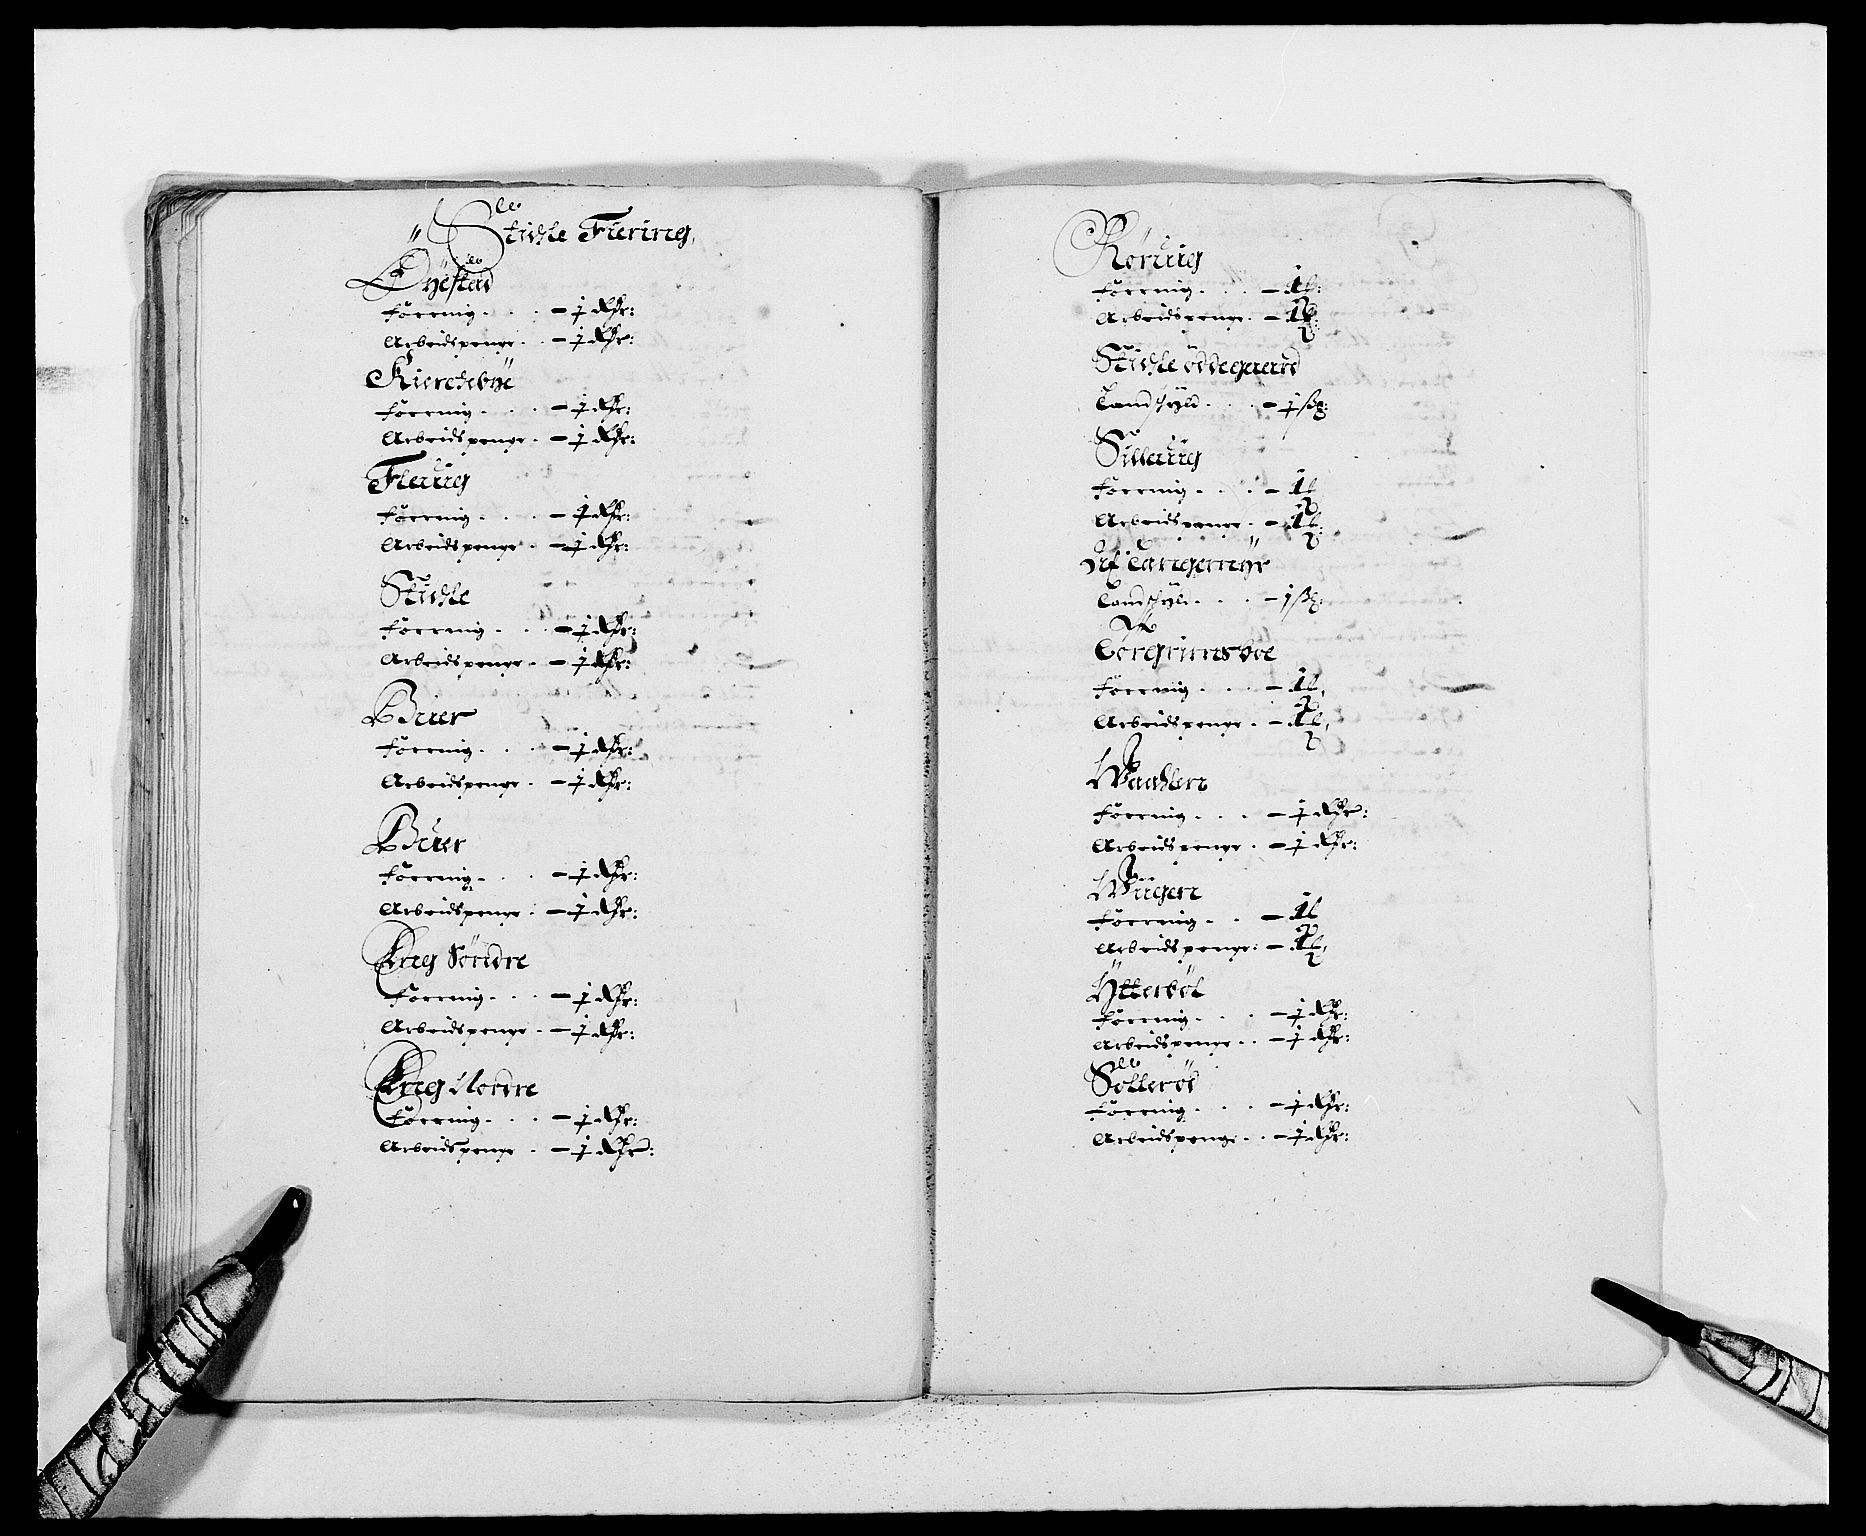 Stichle Fiering,
Øÿestad
Foering . . . — 1 Rdr:
Arbeidspenge . . — 1 Rdr:
Kierchebÿe
Foering . . . — 1 Rdr:
Arbeidspenge . — 1 Rdr:
Fleuig
Foering . . . — 1 Rdr:
Arbeidspenge . — 1 Rdr:
Stichle
Foering . . . — 1 Rdr:
Arbeidspenge . — 1 Rdr:
Buer
Foering . . . — 1 Rdr:
Arbeidspenge . — 1 Rdr:
Buer
Foering . . . — 1 Rdr:
Arbeidspenge . — 1 Rdr:
Søndre
Foering . . . — 1 Rdr:
Arbeidspenge . — 1 Rdr:
Nordre
Foering . . . — 1 Rdr:
Arbeidspenge . — 1 Rdr:
Røruig
Foering . . . —
Arbeidspenge . —
Stichle øddegaard
Landschyld . . . — 1
Silleuig
Foering . . . —
Arbeidspenge . —
Af Langemÿr
Landschyld . . . — 1
Af
Torgrimsboe
Foering . . . —
Arbeidspenge . —
Waahlen
Foering . . . — 1 Rdr:
Arbeidspenge . — 1 Rdr:
Wügen
Foering . . —
Arbeidspenge: —
Ÿtterbøl
Foering . . . — 1 Rdr:
Arbeidspenge . . — 1 Rdr:
Søllerøe
Foering . . . — 1 Rdr:
Arbeidspenge . . — 1 Rdr: